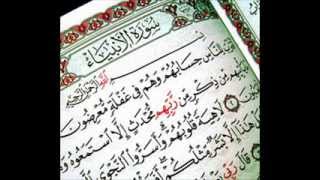 سُورَةُ الْأَنْبِيَاءِ
بِسْمِ اللَّهِ الرَّحْمَٰنِ الرَّحِيمِ
لِلنَّاسِ حِسَابُهُمْ وَهُمْ فِي غَفْلَةٍ مُعْرِضُونَ
مِنْ ذِكْرٍ مِنْ رَبِّهِمْ مُحْدَثٍ إِلَّا اسْتَمَعُوهُ
لَاهِيَةً قُلُوبُهُمْ وَأَسَرُّوا النَّجْوَى
هَذَا إِلَّا بَشَرٌ مِثْلُكُمْ
قَالَ رَبِّي